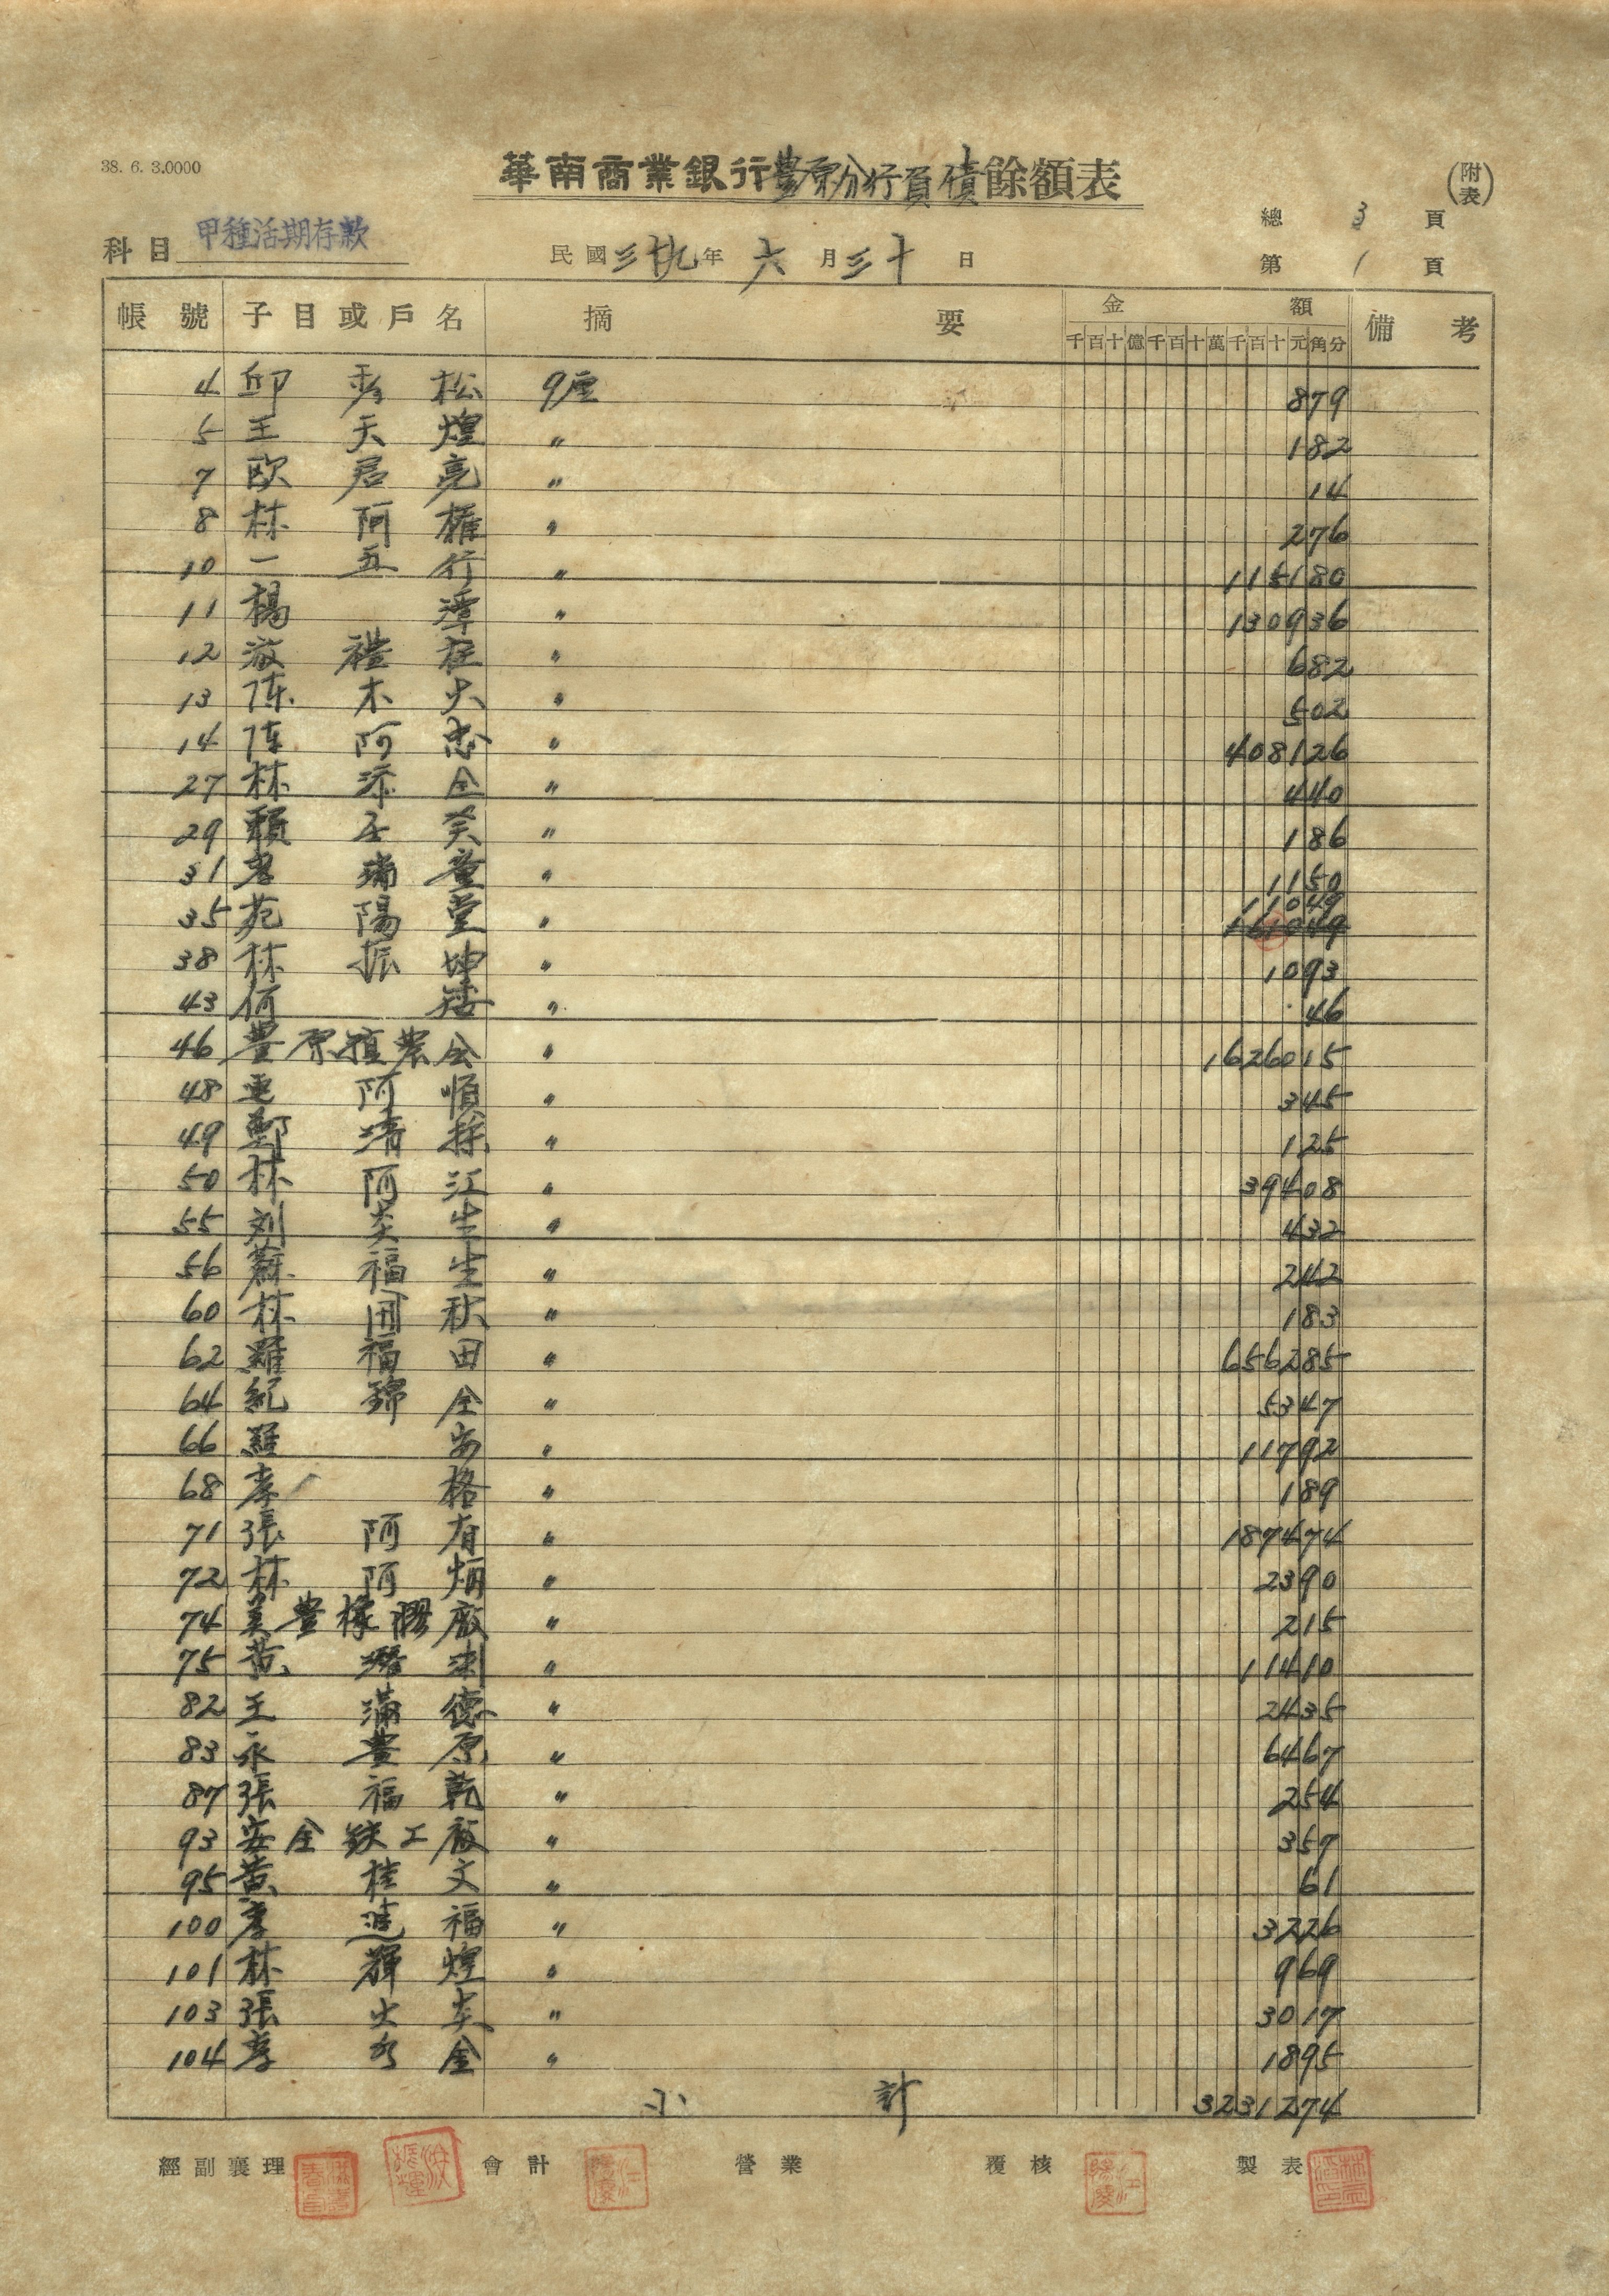 38. 6. 3.0000
華南商業銀行豐原分行負債餘額表
(附表)
總 3 頁
科目 甲種活期存款
民國三十九年六月三十日
第 1 頁
帳號 子目或戶名 摘要 金額 備考
千百十億千百十萬千百十元角分
4 邱 秀 松 9厘 879
5 王 天 煌 〃 182
7 欧 君 亮 〃 14
8 林 阿 〃 276
10 一 五 行 〃 115180
11 楊 漳 〃 130936
12 禮 〃 682
13 陈 木 火 〃 502
14 陈 阿 忠 〃 408126
27 林 添 全 〃 440
29 賴 〃 186
31 瑞 〃 1150
11049
35 苑 陽 堂 〃 161049
38 林 振 坤 〃 1093
43 何 〃 46
46 豐原 農会 〃 1626015
48 阿 順 〃 345
49 鄭 清 〃 125
50 林 阿 江 〃 39408
55 刘 炎 生 〃 432
56 蘇 福 生 〃 242
60 林 秋 〃 183
62 羅 福 田 〃 656285
64 紀 錦 全 〃 5347
66 羅 安 〃 11792
68 李 格 〃 189
71 張 阿 有 〃 187474
72 林 阿 炳 〃 2390
74 美豐橡膠廠 〃 215
75 黄 〃 11410
82 王 滿 德 〃 2435
83 永 豊 原 〃 6467
87 張 福 乾 〃 254
93 安全鉄工廠 〃 357
95 黄 桂 文 〃 61
100 李 進 福 〃 3226
101 林 輝 煌 〃 969
103 張 火 〃 3017
104 李 金 〃 1895
小計 3231274
經副襄理 會計 營業 覆核 製表